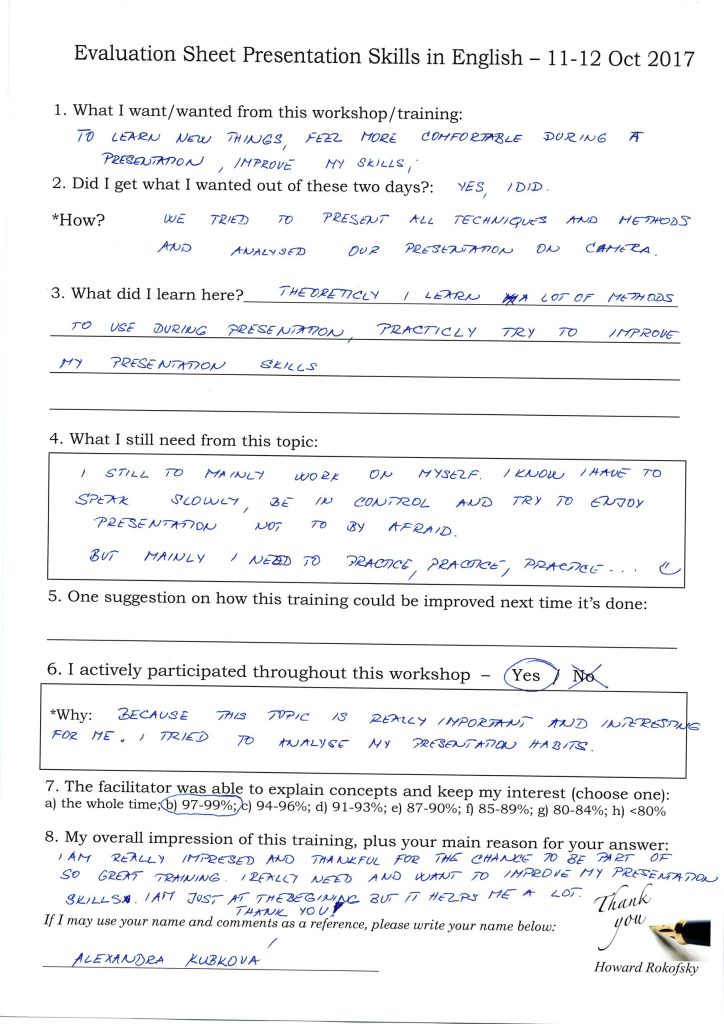 Evaluation Sheet Presentation Skills in English – 11-12 Oct 2017
1. What I want/wanted from this workshop/training:
TO LEARN NEW THINGS, FEEL MORE COMFORTABLE DURING A
PRESENTATION, IMPROVE MY SKILLS,
2. Did I get what I wanted out of these two days?: YES, I DID.
*How? WE TRIED TO PRESENT ALL TECHNIQUES AND METHODS
AND ANALYSED OUR PRESENTATION ON CAMERA.
3. What did I learn here? THEORETICLY I LEARN A LOT OF METHODS
TO USE DURING PRESENTATION, PRACTICLY TRY TO IMPROVE
MY PRESENTATION SKILLS
4. What I still need from this topic:
I STILL TO MAINLY WORK ON MYSELF. I KNOW I HAVE TO
SPEAK SLOWLY, BE IN CONTROL AND TRY TO ENJOY
PRESENTATION NOT TO BY AFRAID.
BUT MAINLY I NEED TO PRACTICE, PRACTICE, PRACTICE...
5. One suggestion on how this training could be improved next time it's done:
6. I actively participated throughout this workshop – Yes / No
*Why: BECAUSE THIS TOPIC IS REALLY IMPORTANT AND INTERESTING
FOR ME. I TRIED TO ANALYSE MY PRESENTATION HABITS.
7. The facilitator was able to explain concepts and keep my interest (choose one):
a) the whole time; b) 97-99%; c) 94-96%; d) 91-93%; e) 87-90%; f) 85-89%; g) 80-84%; h) <80%
8. My overall impression of this training, plus your main reason for your answer:
I AM REALLY IMPRESED AND THANKFUL FOR THE CHANCE TO BE PART OF
SO GREAT TRAINING. I REALLY NEED AND WANT TO IMPROVE MY PRESENTATION
SKILLS. I AM JUST AT THE BEGINING BUT IT HELPS ME A LOT.
THANK YOU!
Thank
you
If I may use your name and comments as a reference, please write your name below:
ALEXANDRA KUBKOVA
Howard Rokofsky